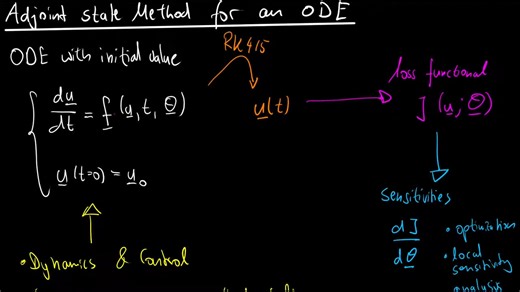 Adjoint state Method for an ODE
ODE with initial value
RK45
du/dt = f(u, t, θ)
u(t)
loss functional
J(u; θ)
u(t=0) = u₀
Sensitivities
dJ/dθ
• optimization
• local sensitivity analysis
• Dynamics & Control